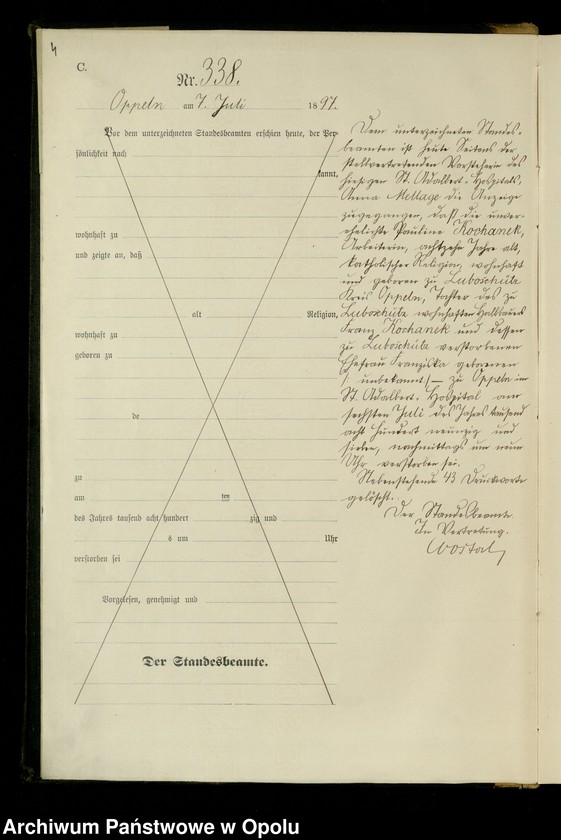 4
C.
Nr. 338.
Oppeln am 7. Juli 1897.
Vor dem unterzeichneten Standesbeamten erschien heute, der Per-
sönlichkeit nach
kannt,
wohnhaft zu
und zeigte an, daß
alt Religion,
wohnhaft zu
geboren zu
de
zu
am ten
des Jahres tausend acht hundert zig und
s um Uhr
verstorben sei
Vorgelesen, genehmigt und
Der Standesbeamte.
Dem unterzeichneten Standes-
beamten ist heute Seitens der
stellvertretenden Vorsteherin des
hiesigen St. Adalbert-Hospitals,
Anna Mellage die Anzeige
zugegangen, daß die unver-
ehelichte Pauline Kochanek,
Arbeiterin, achtzehn Jahre alt,
katholischer Religion, wohnhaft
und geboren zu Luboschütz
Kreis Oppeln, Tochter des zu
Luboschütz wohnhaften Halbbauers
Franz Kochanek und dessen
zu Luboschütz verstorbenen
Ehefrau Franziska geborenen
(: unbekannt) — zu Oppeln im
St. Adalbert-Hospital am
sechsten Juli des Jahres tausend
acht hundert neunzig und
sieben, nachmittags um neun
Uhr verstorben sei.
Nebenstehende 43 Druckworte
gelöscht.
Der Standesbeamte.
In Vertretung.
Wostal
Archiwum Państwowe w Opolu